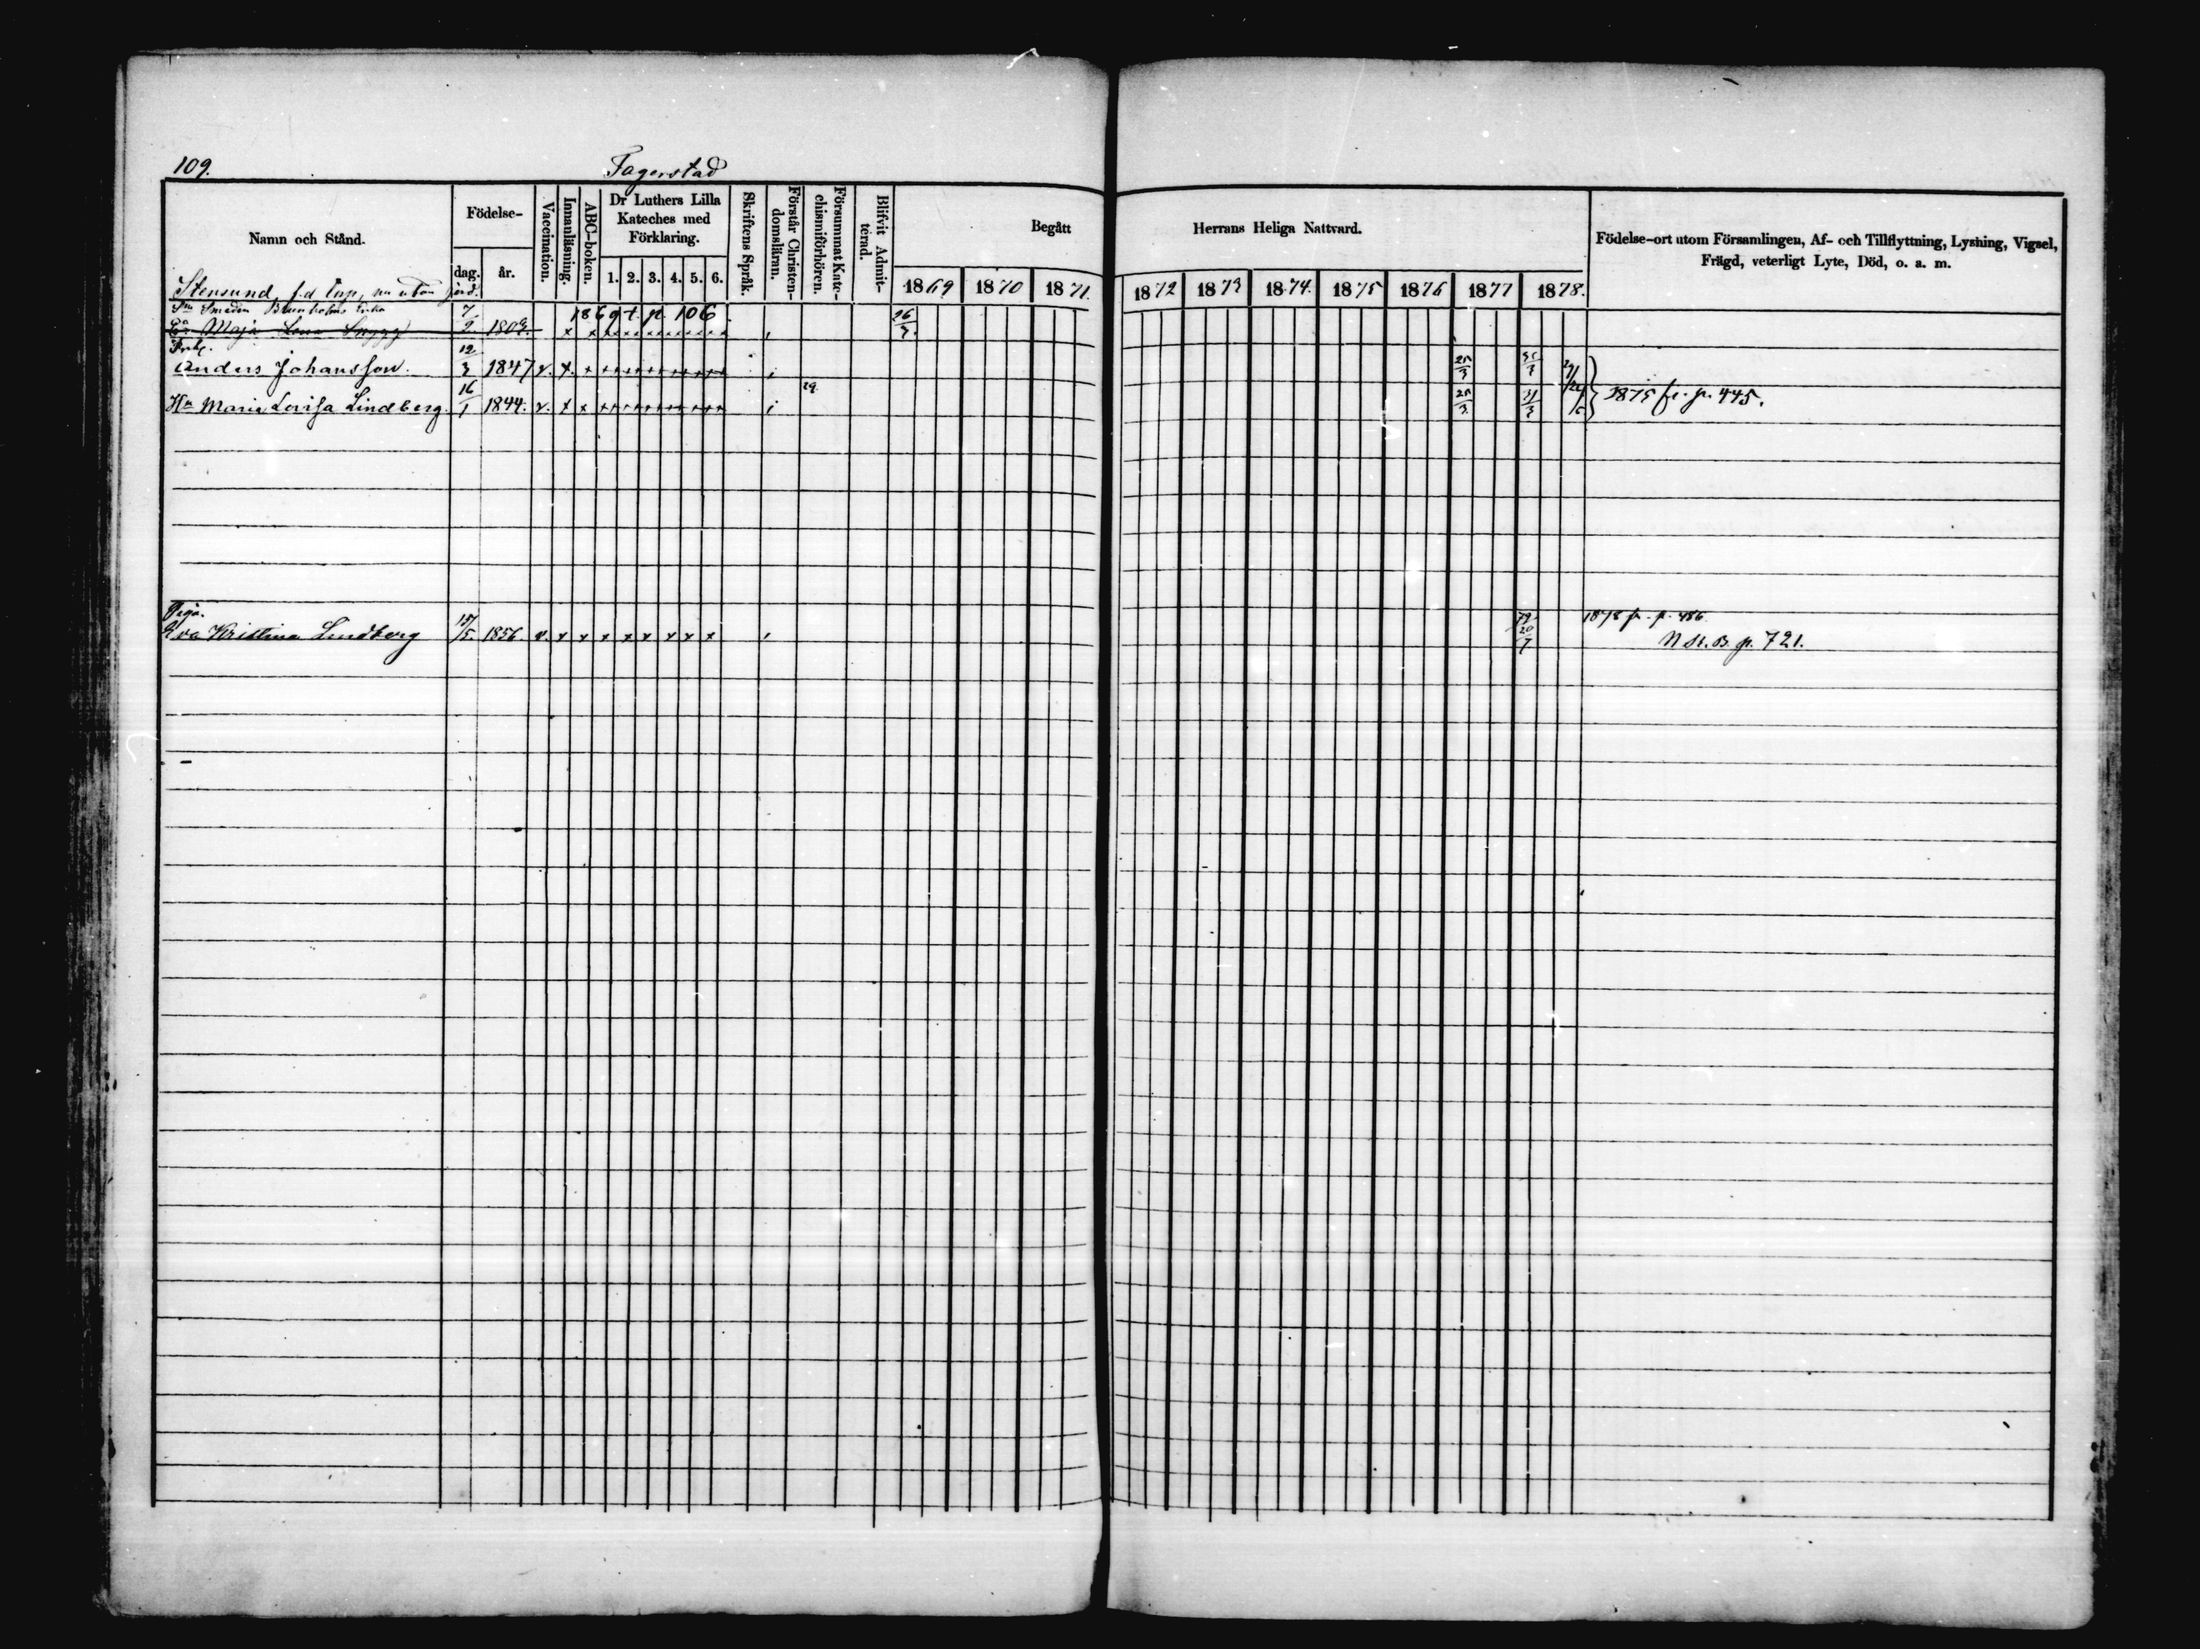 109.
Fagerstad
Namn och Stånd.
Födelse-
dag.
år.
Vaccination.
Innanläsning.
ABC-boken.
Dr Luthers Lilla
Kateches med
Förklaring.
1. 2. 3. 4. 5. 6.
Skriftens Språk.
Förstår Christen-
domsläran.
Försummat Kate-
chismiförhören.
Blifvit Admit-
terad.
Begått
Herrans Heliga Nattvard.
1869 1870 1871.
1872 1873 1874. 1875 1876 1877 1878.
Födelse-ort utom Församlingen, Af- och Tillflyttning, Lysning, Vigsel,
Frägd, veterligt Lyte, Död, o. a. m.
Stensund, f.d. torp, nu utan jord.
Smeden Enka
7/2 1809. 1869 t. p. 106 26/7.
Maja Lena Snygg
Anders Johansson. 12/3 1847 v. 25/3 31/3
Hn Maria Lovisa Lindberg. 16/1 1844. v. 29 25/3 31/3 1875 fr. p. 445.
Piga.
Eva Kristina Lundberg 15/5. 1856. v. 79. 20/7 1878 fr. p. 486.
N. A. B. p. 721.